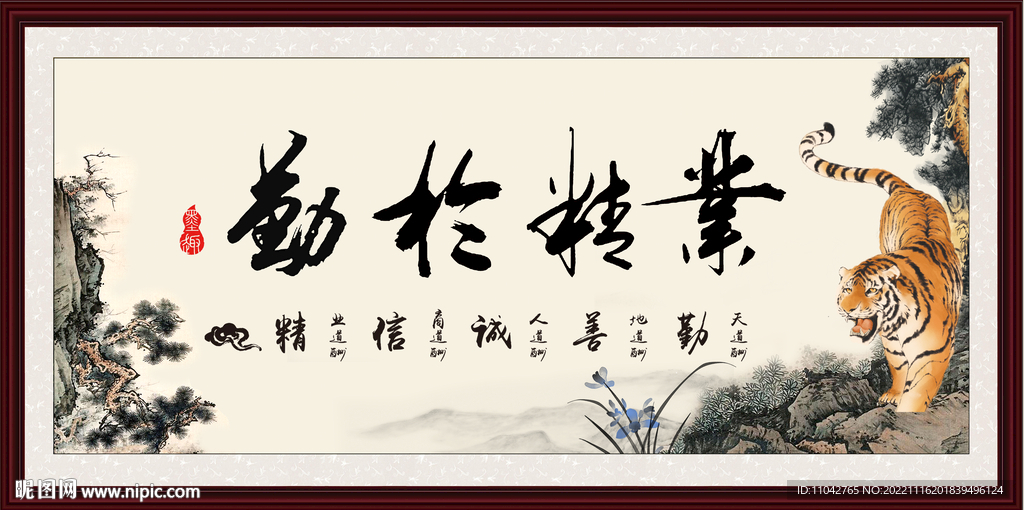 業精於勤
天道酬勤 地道酬善 人道酬诚 商道酬信 业道酬精
墨趣
昵图网 www.nipic.com
ID:11042765 NO:20221116201839496124